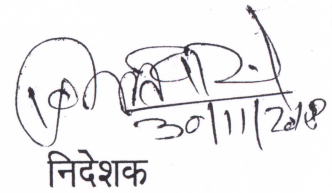 30/11/2018
निदेशक